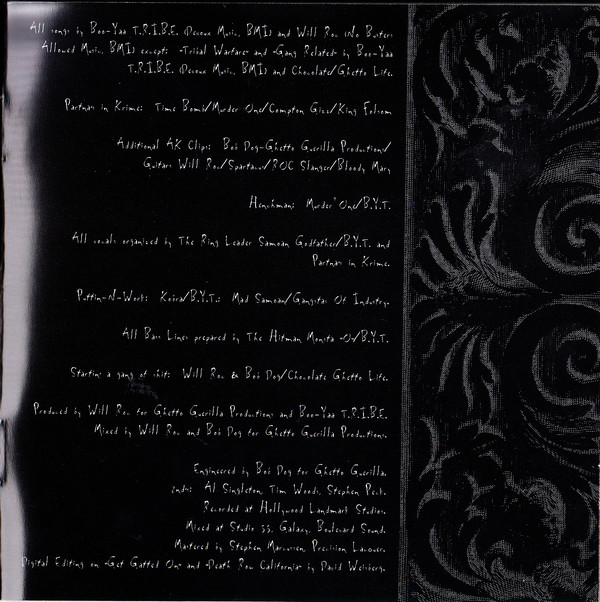 All songs by Boo-Yaa T.R.I.B.E. (Decoux Music, BMI) and Will Rou (No Busters
Allowed Music, BMI) except: -Tribal Warfare- and -Gang Related- by Boo-Yaa
T.R.I.B.E. (Decoux Music, BMI) and Chocolate/Ghetto Life.
Partnas in Krime: Time Bomb/Murder One/Compton Gizz/King Folsom
Additional AK Clips: Bob Dog-Ghetto Guerilla Productions/
Guitars Will Rou/Spartacus/ROC Slanger/Bloody Mary
Henchman: Murder One/B.Y.T.
All vocals organized by The Ring Leader Samoan Godfather/B.Y.T. and
Partnas in Krime.
Puttin-N-Work: Kobra/B.Y.T.: Mad Samoan/Gangstas Of Industry.
All Bass Lines prepared by The Hitman Monsta -O-/B.Y.T.
Startin a gang of shit: Will Rou & Bob Dog/Chocolate Ghetto Life.
Produced by Will Rou for Ghetto Guerilla Productions and Boo-Yaa T.R.I.B.E.
Mixed by Will Rou and Bob Dog for Ghetto Guerilla Productions.
Engineered by Bob Dog for Ghetto Guerilla.
2nds: Al Singleton, Tim Woods, Stephen
Recorded at Hollywood Landmark Studios.
Mixed at Studio 55, Galaxy, Boulevard Sound.
Mastered by Stephen Marcussen, Precision Lacquer.
Digital Editing on -Get Gatted On- and -Death Row California- by David Weisberg.